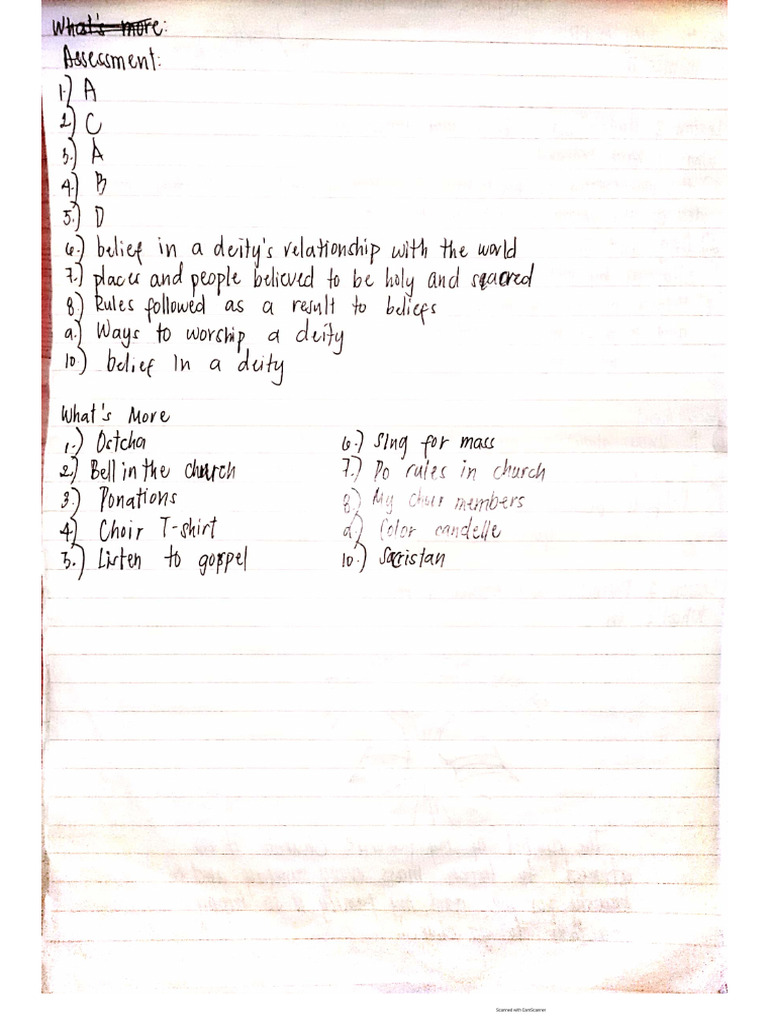 What's more:
Assessment:
1.) A
2.) C
3.) A
4.) B
5.) D
6.) belief in a deity's relationship with the world
7.) places and people believed to be holy and sacred
8.) Rules followed as a result to beliefs
9.) Ways to worship a deity
10.) belief in a deity
What's More
1.) Ostcha
2.) Bell in the church
3.) Donations
4.) Choir T-shirt
5.) Listen to gospel
6.) Sing for mass
7.) Do rules in church
8.) My choir members
9.) Color candelle
10.) Sacristan
Scanned with CamScanner